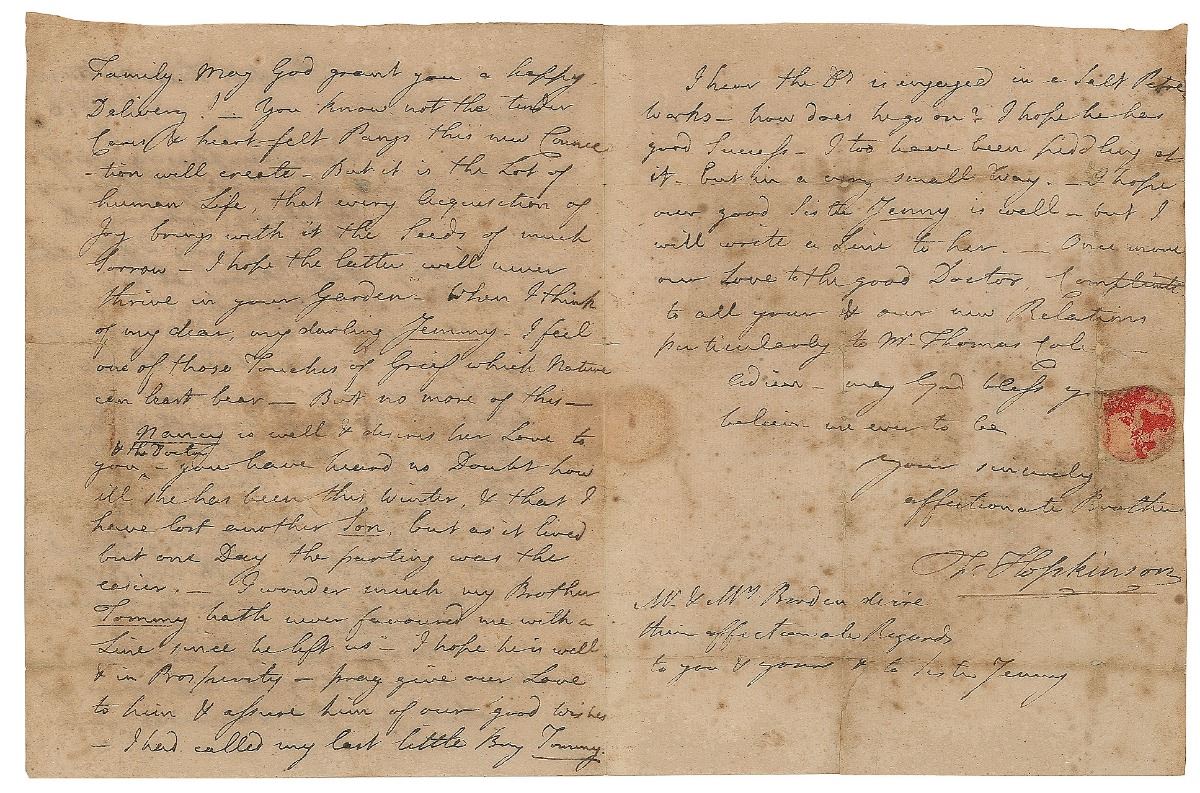 Family. May God grant you a happy
Delivery! — You know not the tender
Cares & heart-felt Pangs this new Connec
-tion will create - But it is the Lot of
human Life, that every Acquisition of
Joy brings with it the Seeds of much
Sorrow - I hope the latter will never
thrive in your Garden - When I think
of my dear, my darling Jemmy - I feel
one of those Touches of Grief which Nature
can least bear — But no more of this —
Nancy is well & desires her Love to
& the Doctor
you - you have heard no Doubt how
ill she has been this Winter, & that I
have lost another Son, but as it lived
but one Day the parting was the
easier. — I wonder much my Brother
Tommy hath never favoured me with a
Line since he left us - I hope he is well
& in Prosperity - pray give our Love
to him & assure him of our good Wishes
- I had called my last little Boy Tommy.
I hear the Dr is engaged in a Salt Petre
Works - how does he go on? I hope he has
good Success - I too have been peddling at
it - but in a very small Way. - I hope
our good Sister Jenny is well - but I
will write a Line to her. — Once more
our Love to the good Doctor, Complimts
to all your & our new Relations
particularly to Mr Thomas
Adieu - may God bless y
believe me ever to be
Your sincerely
affectionate Brother
Fs Hopkinson
Mr & Mrs Borden desire
their affectionate Regards
to you & yours & to Sister Jenny